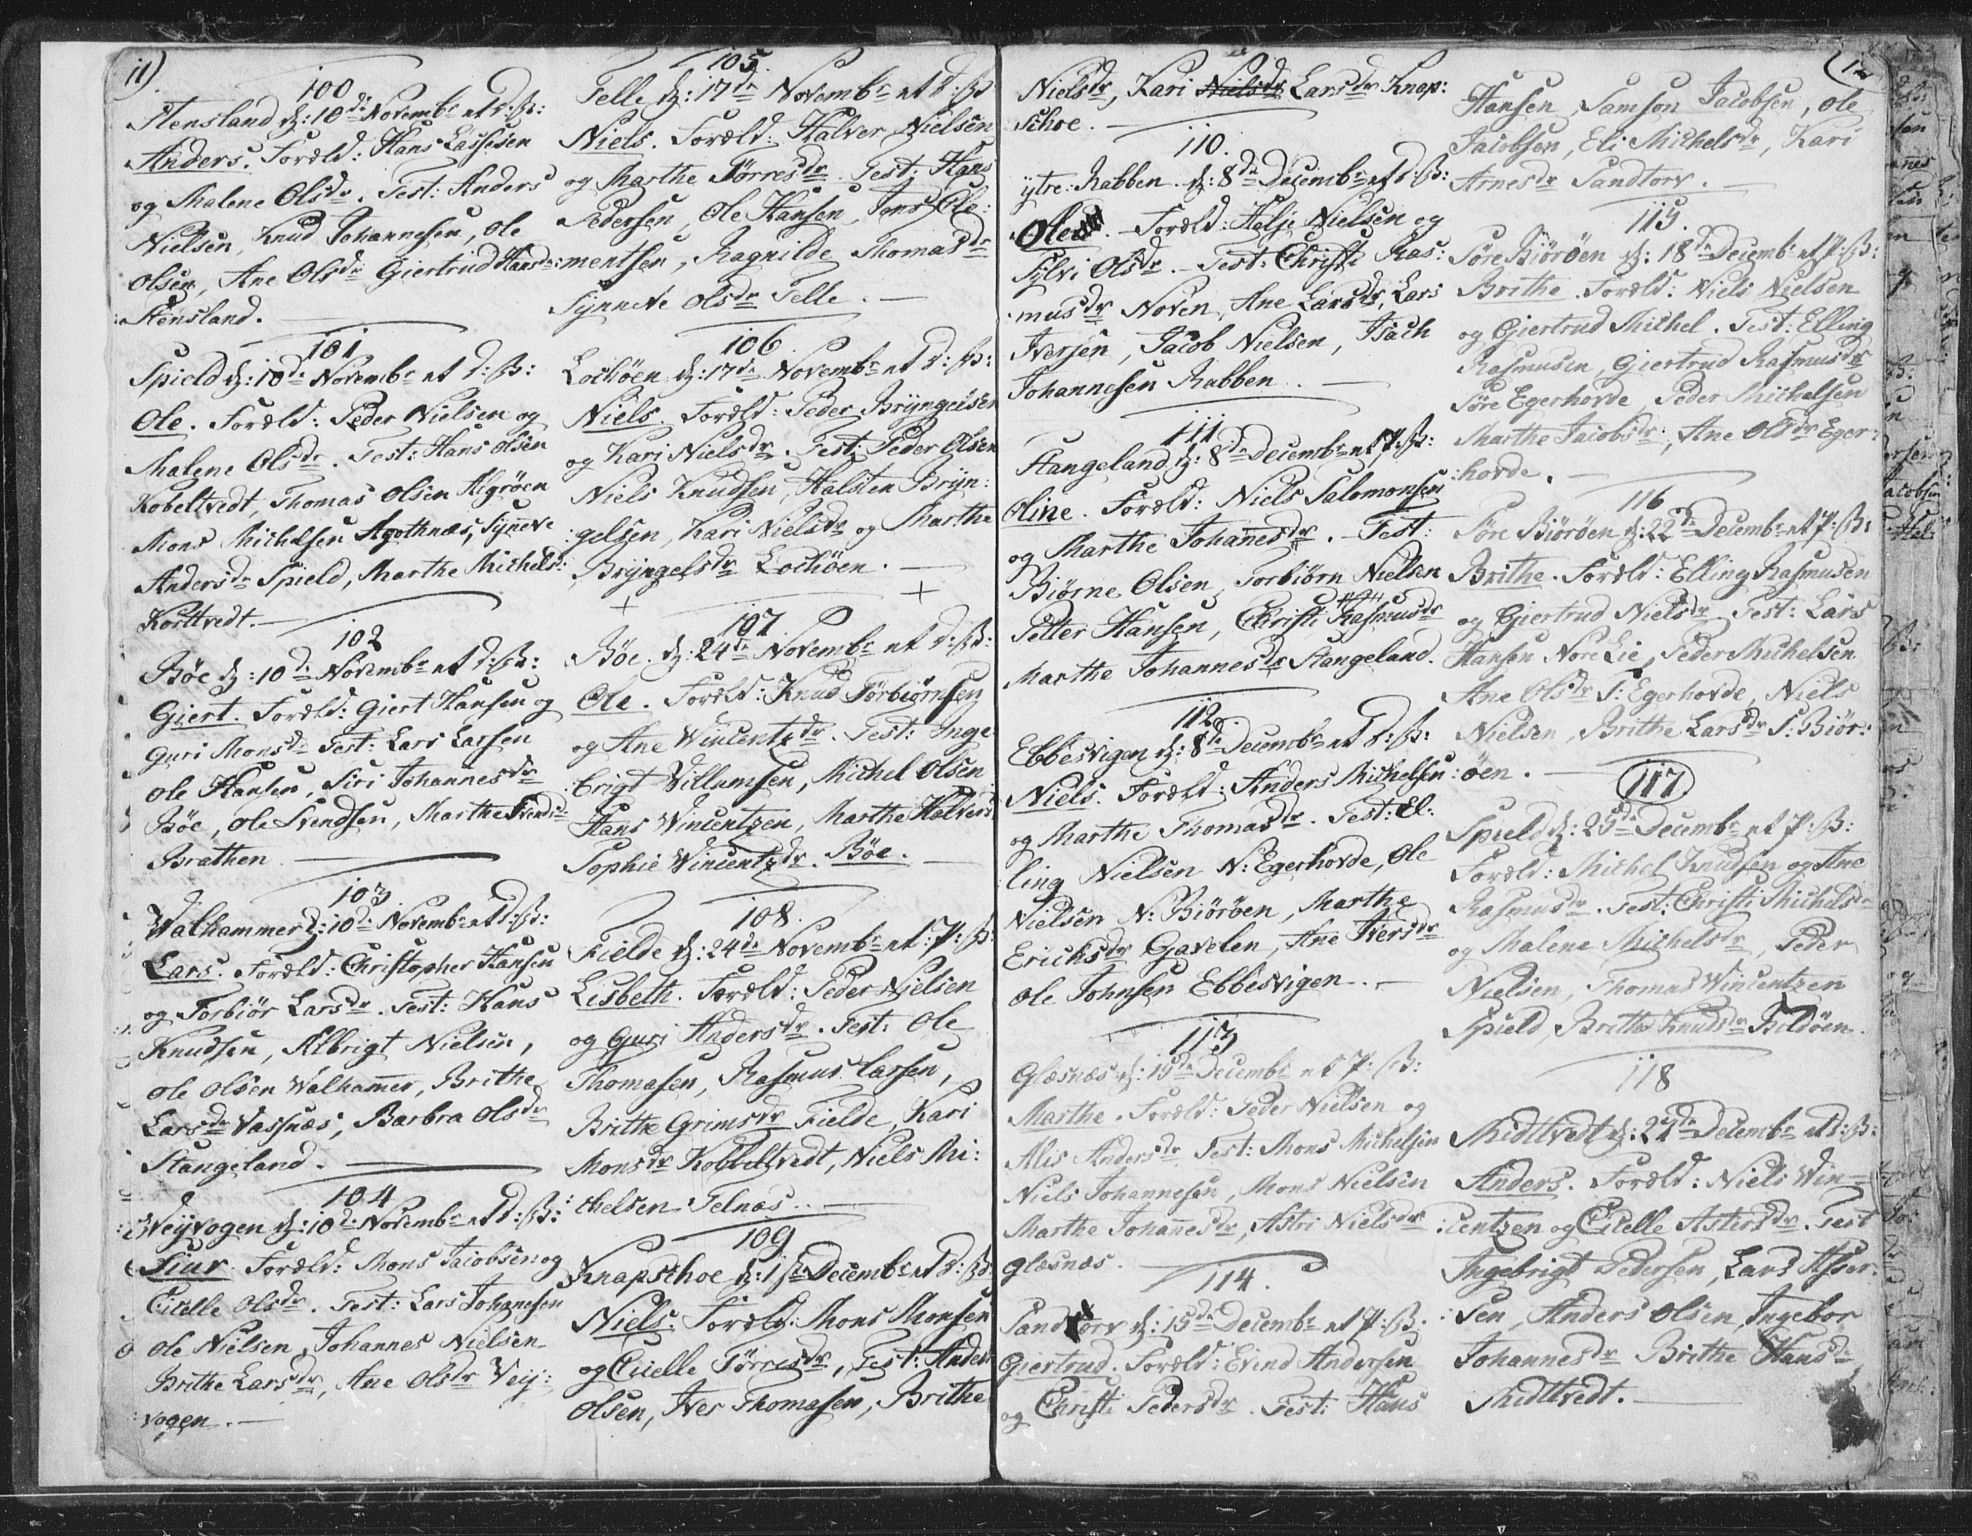 11)
100
Stensland d: 10de Novembr et d: ß:
Anders. Foræld: Hans Lassesen
og Malene Olsdr. Test: Anders
Nielsen, Knud Johannesen, Ole
Olsen, Ane Olsdr Giertrud Hansdr
Stensland.
101
Spield d: 10de Novembr et d: ß:
Ole. Foræld: Peder Nielsen og
Malene Olsdr. Test: Hans Olsen
Kobeltvedt, Thomas Olsen Algrøen
Mons Michelsen Agothnæs, Syneve
Andersdr Spield, Marthe Michels:
Korttvedt.
102
Bøe d: 10de Novembr et d: ß:
Giert. Foræld: Giert Hansen og
Guri Monsdr Test: Lars Larsen
Ole Hansen, Siri Johannesdr
Bøe, Ole Svendsen, Marthe Svendsdr
Brathen
103
Walhammer d: 10de Novembr et d: ß:
Lars. Foræld: Christopher Hansen
og Torbiør Larsdr. Test: Hans
Knudsen, Albrigt Nielsen,
Ole Olsen Walham̅er, Brithe
Larsdr Vassnæs, Barbra Olsdr
Stangeland.
104
Weyvogen d: 10de Novembr et d: ß:
Siur. Foræld: Mons Jacobsen og
Citelle Olsdr. Test: Lars Johannesen
Ole Nielsen, Johannes Nielsen
Brithe Larsdr, Ane Olsdr Veij:
vogen.
105
Telle d: 17de Novembr et d: ß
Niels. Foræld: Halver Nielsen
og Marthe Tørresdr. Test: Hans
Pedersen, Ole Hansen, Jens Cle:
:mentsen, Ragnilde Thomasdr
Synneve Olsdr Telle.
106
Lochøen d: 17de Novembr et d: ß:
Niels. Foræld: Peder Bryngelsen
og Kari Nielsdr. Test: Peder Olsen
Niels Knudsen, Halsten Bryn:
:gelsen, Kari Nielsdr og Marthe
Bryngelsdr Lochøen.
107
Bøe. d: 24de Novembr et d: ß:
Ole. Foræld: Knud Torbiørnsen
og Ane Wincentzdr. Test: Inge
:brigt Villumsen, Michel Olsen
Hans Wincentzen, Marthe Halvers
Sophie Wincentzdr. Bøe.
108.
Fielde d: 24de Novembr et: P: ß:
Lisbeth. Foræld: Peder Nielsen
og Guri Andersdr. Test: Ole
Thomasen, Rasmus Larsen,
Brithe Grimsdr Fielde, Kari
Monsdr Kobbeltvedt, Niels Mi:
:chelsen Telnæs.
109
Knapschoe d: 1ste Decembr et d: ß:
Niels. Foræld: Mons Monsen
og Citelle Tørresdr, Test: Anders
Olsen, Iver Thomasen, Brithe
Nielsdr, Kari Nielsdr Larsdr Knap:
schoe.
110.
ijtre: Rabben. d: 8de Decembr et d: ß:
Ole. Foræld: Helje Nielsen og
Sylvi Olsdr. Test: Christi Ras:
:musdr Noven, Ane Larsdr, Lars
Iversen, Jacob Nielsen, Isach
Johannesen Rabben.
111
Stangeland d: 8de Decembr et P: ß:
Oline. Foræld: Niels Salomonsen
og Marthe Johan̅esdr. Test:
Biørne Olsen, Torbiørn Nielsen
Petter Hansen, Christi Rasmusdr
Marthe Johannesdr Stangeland.
112.
Ebbesvigen d: 8de Decembr et d: ß:
Niels. Foræld: Anders Michelsen
og Marthe Thomasdr. Test: El:
:ling Nielsen N: Egerhovde, Ole
Nielsen N: Biørøen, Marthe
Ericksdr Gavelen, Ane Iversdr
Ole Johnsen Ebbesvigen.
113
Glæsnæs d: 15de Decembr et P: ß:
Marthe. Foræld: Peder Nielsen og
Alis Andersdr Test: Mons Michelsen
Niels Johannesen, Mons Nielsen
Marthe Johan̅esdr, Astri Nielsdr
Glæsnæs.
114.
Sandtorv d: 15de Decembr et P: ß:
Giertrud. Foræld: Evind Andersen
og Christi Pedersdr. Test: Hans
12
Hansen, Samson Jacobsen, Ole
Jacobsen, Eli Michelsdr, Kari
Arnesdr Sandtorv.
115.
Søre Biørøen d: 18de Decembr et P: ß:
Brithe. Foræld: Niels Nielsen
og Giertrud Michel. Test: Elling
Rasmusen, Giertrud Rasmusdr
Søre Egerhovde, Peder Michelsen
Marthe Jacobsdr, Ane Olsdr Eger:
:hovde.
116
Søre Biørøen d: 22de Decembr et P: ß:
Brithe. Foræld: Elling Rasmusen
og Giertrud Nielsdr Test: Lars
Hansen Nore Lie, Peder Michelsen
Ane Olsdr S: Egerhovde, Niels
Nielsen, Brithe Larsdr S: Biør:
:øen.
117
Spield d: 25de Decembr et P: ß:
Foræld: Michel Knudsen og Ane
Rasmusdr. Test: Christi Michelsdr
og Malene Michelsdr, Peder
Nielsen, Thomas Wincentzen
Spield, Brithe Knudsdr Bildøen.
118
Midttvedt d: 24de Decembr et d: ß:
Anders. Foræld: Niels Win=
:centzen og Citelle Astersdr. Test
Ingebrigt Pedersen, Lars Asser:
:sen, Anders Olsen, Ingebor
Johannesdr Brithe Hansdr
Midttvedt.